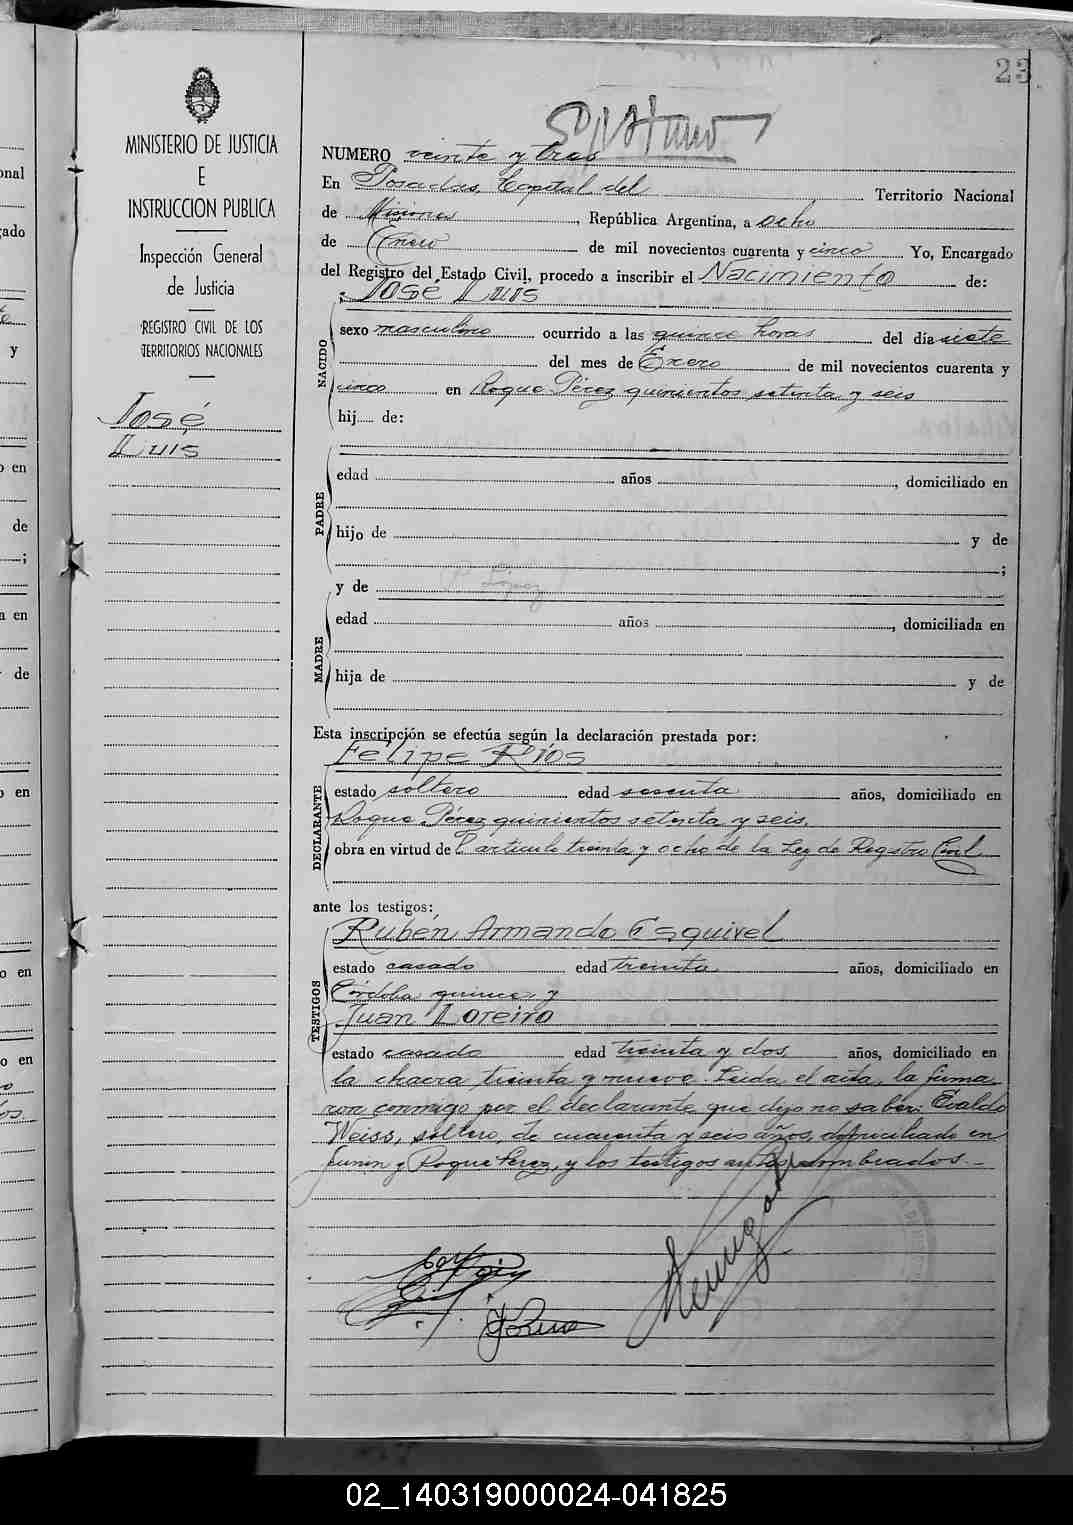 23
MINISTERIO DE JUSTICIA
E
INSTRUCCION PUBLICA
Inspección General
de Justicia
REGISTRO CIVIL DE LOS
TERRITORIOS NACIONALES
José
Luis
NUMERO veinte y tres
En Posadas, Capital del Territorio Nacional
de Misiones, República Argentina, a ocho
de Enero de mil novecientos cuarenta y cinco Yo, Encargado
del Registro del Estado Civil, procedo a inscribir el Nacimiento de:
José Luis
NACIDO
sexo masculino ocurrido a las quince horas del día siete
del mes de Enero de mil novecientos cuarenta y
cinco en Roque Pérez quinientos setenta y seis
hij de:
PADRE
edad años, domiciliado en
hijo de y de
;
y de
López
MADRE
edad años, domiciliada en
hija de y de
Esta inscripción se efectúa según la declaración prestada por:
Felipe Ríos
DECLARANTE
estado soltero edad sesenta años, domiciliado en
Roque Pérez quinientos setenta y seis,
obra en virtud del articulo treinta y ocho de la Ley de Registro Civil
ante los testigos:
TESTIGOS
Rubén Armando Esquivel
estado casado edad treinta años, domiciliado en
Córdoba quince y
Juan Loreiro
estado casado edad treinta y dos, años, domiciliado en
la chacra treinta y nueve. Leida el acta, la firma
ron conmigo por el declarante que dijo no saber: Evaldo
Weiss, soltero, de cuarenta y seis años, domiciliado en
Junin y Roque Perez, y los testigos antes nombrados.
02_140319000024-041825